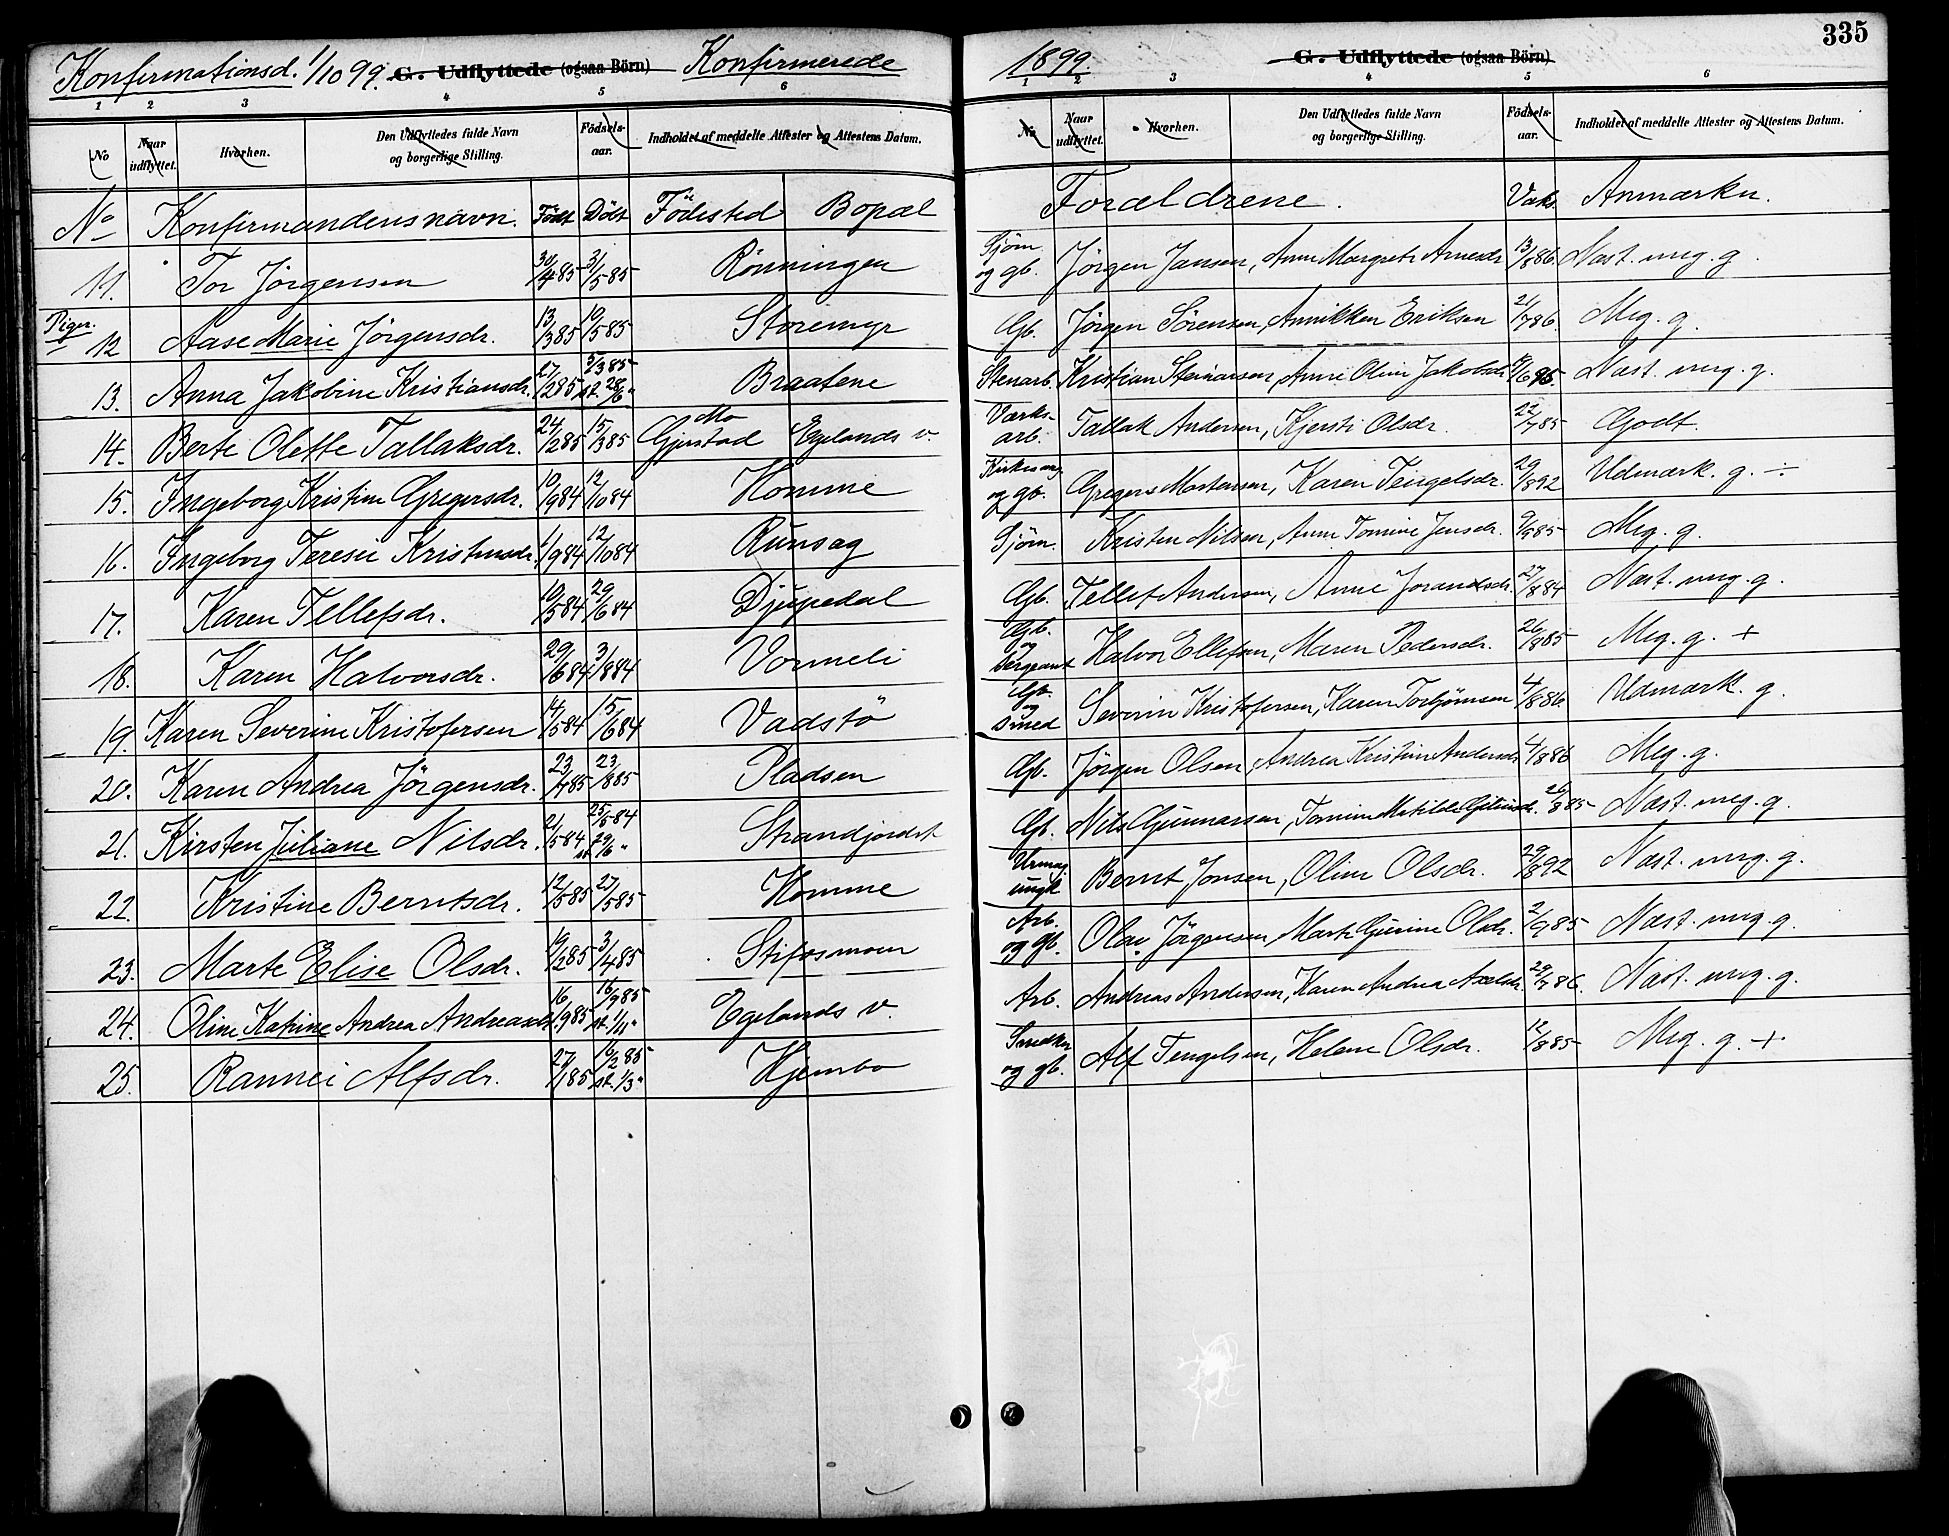 Konfirmationsd. 1/10 99. G. Udflyttede (ogsaa Börn) Konfirmerede
1 2 3 4 5 6
No Naar udflyttet. Hvorhen. Den Udflyttedes fulde Navn og borgerlige Stilling. Födsels-aar. Indholdet af meddelte Attester og Attestens Datum.
No Konfirmandens navn. Födt Döbt Födested Bopæl
11. Tor Jörgensen 30/4 85 31/5 85 Rönningen
Piger.
12 Aase Marie Jörgensdr. 13/3 85 10/5 85 Storemyr
13. Anna Jakobine Kristiansdr. 27/2 85 5/3 85 st. 28/6 " Braatene
14. Berte Olette Tallaksdr. 24/2 85 15/3 85 Mo Gjerstad Egelands v.
15. Ingeborg Kristine Gregersdr. 10/9 84 12/10 84 Homme
16. Ingeborg Teresie Kristensdr. 1/9 84 12/10 84 Runsag
17. Karen Tellefsdr. 10/5 84 29/6 84 Djupedal
18. Karen Halvorsdr. 29/6 84 3/8 84 Vormeli
19. Karen Severine Kristofersen 14/5 84 15/6 84 Vadstö
20. Karen Andrea Jörgensdr. 23/7 85 23/8 85 Pladsen
21. Kirsten Juliane Nilsdr. 21/5 84 25/5 84 st. 29/6 " Strandjordet
22. Kristine Berntsdr. 12/5 85 27/5 85 Homme
23. Marte Elise Olsdr. 19/2 85 3/4 85 Stifosmoen
24. Oline Katrine Andrea Andreasdr. 16/9 85 16/9 85 st. 1/11 " Egelands v.
25. Rannei Alfsdr. 27/1 85 16/2 85 st. 1/3 " Kjembo
335
1899. G. Udflyttede (ogsaa Börn)
1 2 3 4 5 6
No Naar udflyttet. Hvorhen. Den Udflyttedes fulde Navn og borgerlige Stilling. Födsels-aar. Indholdet af meddelte Attester og Attestens Datum.
Forældrene. Vaks. Anmærkn.
Sjöm. og gb. Jörgen Jansen, Anne Margrete Arnesdr. 13/8 86. Næst. meg. g.
Gb. Jörgen Sörensen, Annikken Eriksen 21/7 86. Meg. g.
Stenarb. Kristian Steinarsen, Anne Oline Jakobsdr. Næst. meg. g.
Værks-arb. Tallak Andersen, Kjersti Olsdr. 22/7 85 Godt.
og gb. Gregers Mortensen, Karen Teingelsdr. 29/8 92 Udmærk. g. ÷
Sjöm. Kristen Nilsen, Anne Tomine Jensdr. 9/9 85 Meg. g.
Gb. Tellef Andersen, Anne Jorandsdr. 27/8 84 Næst. meg. g.
Gb. og Sergeant Halvor Ellefsen, Maren Pedersdr. 26/9 85 Meg. g. +
Gb. og smed Severin Kristofersen, Karen Torbjörnsen 4/8 86 Udmærk. g.
Gb. Jörgen Olsen, Andrea Kristine Andersdr. 4/8 86 Meg. g.
Gb. Nils Gunnarsen, Tomine Matilde 26/8 85 Næst. meg. g.
Bernt Jonsen, Oline Olsdr. 29/8 92 Næst. meg. g.
Arb. og gb. Olav Jörgensen, Marte Gurine Olsdr. 2/9 85 Næst. meg. g.
Arb. Andreas Andersen, Karen Andrea Axelsdr. 29/7 86. Næst. meg. g.
og gb. Alf Tengelsen, Helene Olsdr. 12/8 85 Meg. g. +